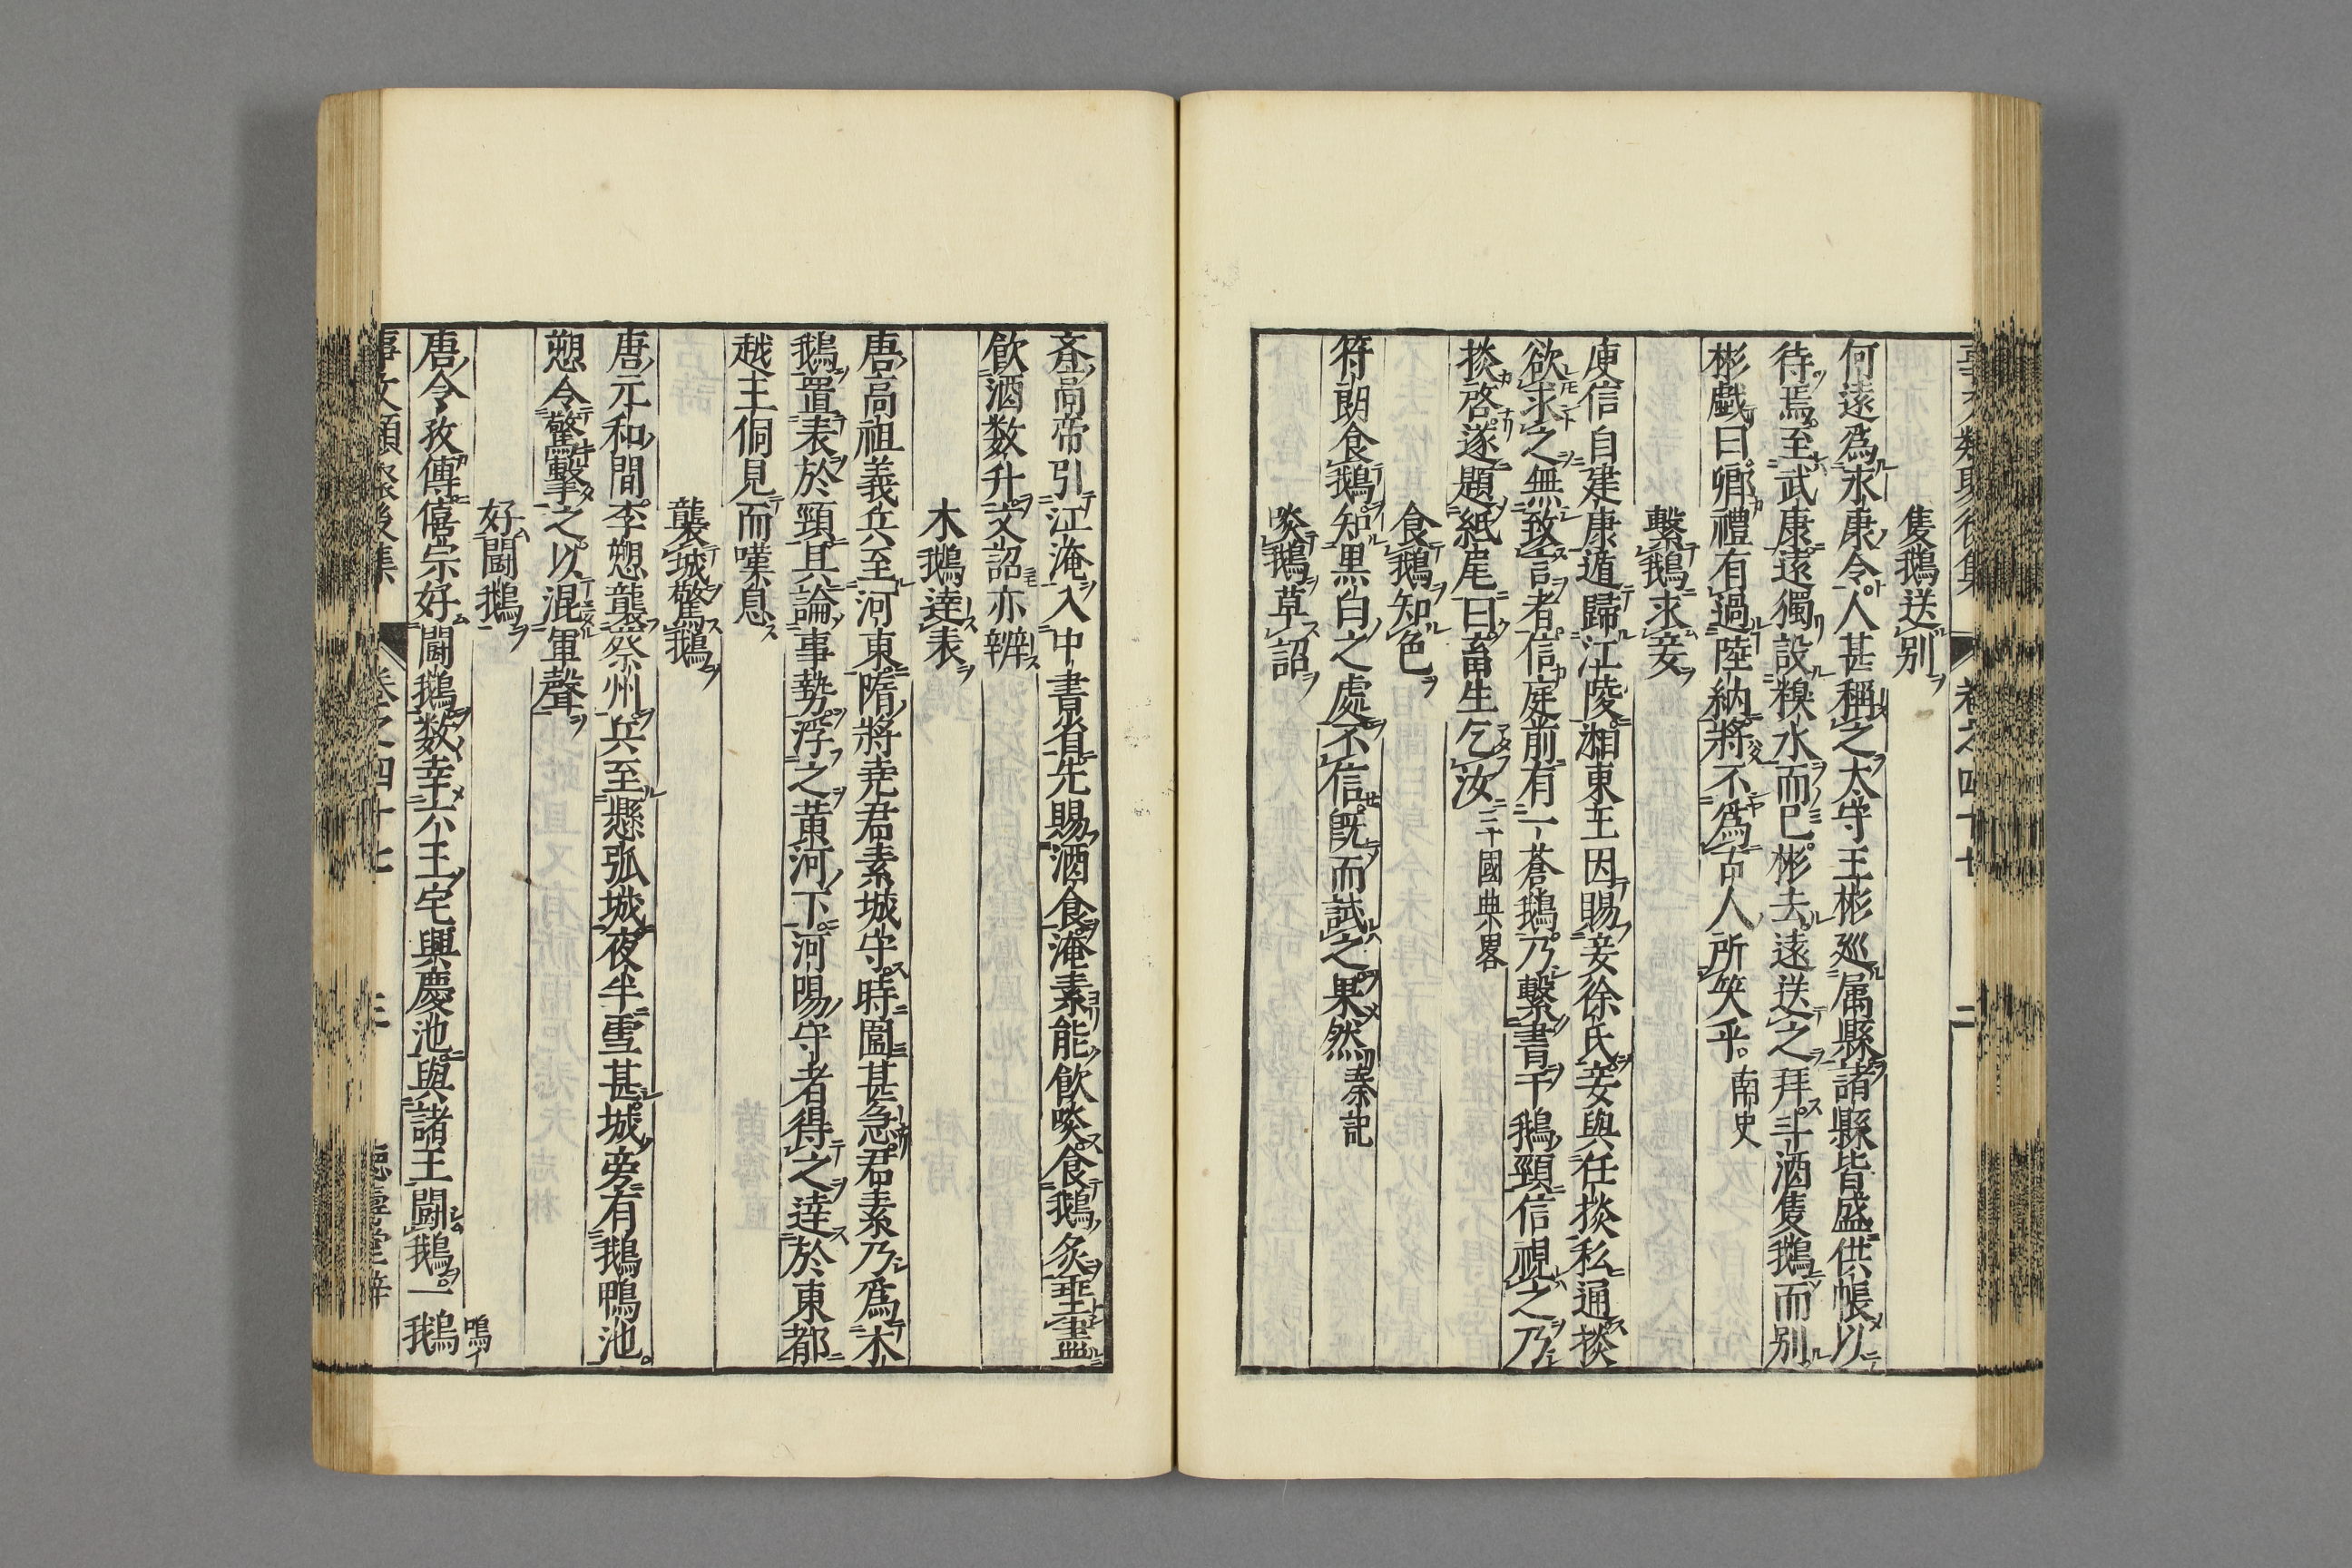 隻鵝送別
何遠爲永康令人甚稱之太守王彬巡属縣諸縣皆盛供帳以
待焉至武康遠獨設糗水而已彬去遠送之拜斗酒隻鵝而別
彬戯曰卿禮有過陸納將不爲古人所笑乎 南史
繫鵝求妾
庾信自建康遁歸江陵湘東王因賜妾徐氏妾與任掞私通掞
欲求之無致言者信庭前有一蒼鵝乃繫書于鵝頸信視之乃
掞啓遂題紙尾曰畜生乞汝 三十國典畧
食鵝知色
符朗食鵝知黒白之處不信旣而試之果然 秦記
啖鵝草詔
斉高帝引江淹入中書省先賜酒食淹素能飲啖食鵝炙垂盡
飲酒数升文詔亦辧
木鵝達表
唐高祖義兵至河東隋將尭君素城守時圍甚急君素乃爲木
鵝置表於頸其論事勢浮之黄河下河陽守者得之達於東都
越主侗見而嘆息
襲城驚鵝
唐元和間李愬襲蔡州兵至懸弧城夜半雪甚城旁有鵝鴨池
愬令驚擊之以混軍聲
好鬪鵝
唐令孜傳僖宗好鬪鵝数幸六王宅興慶池與諸王鬪鵝一鵝
卷之四十七